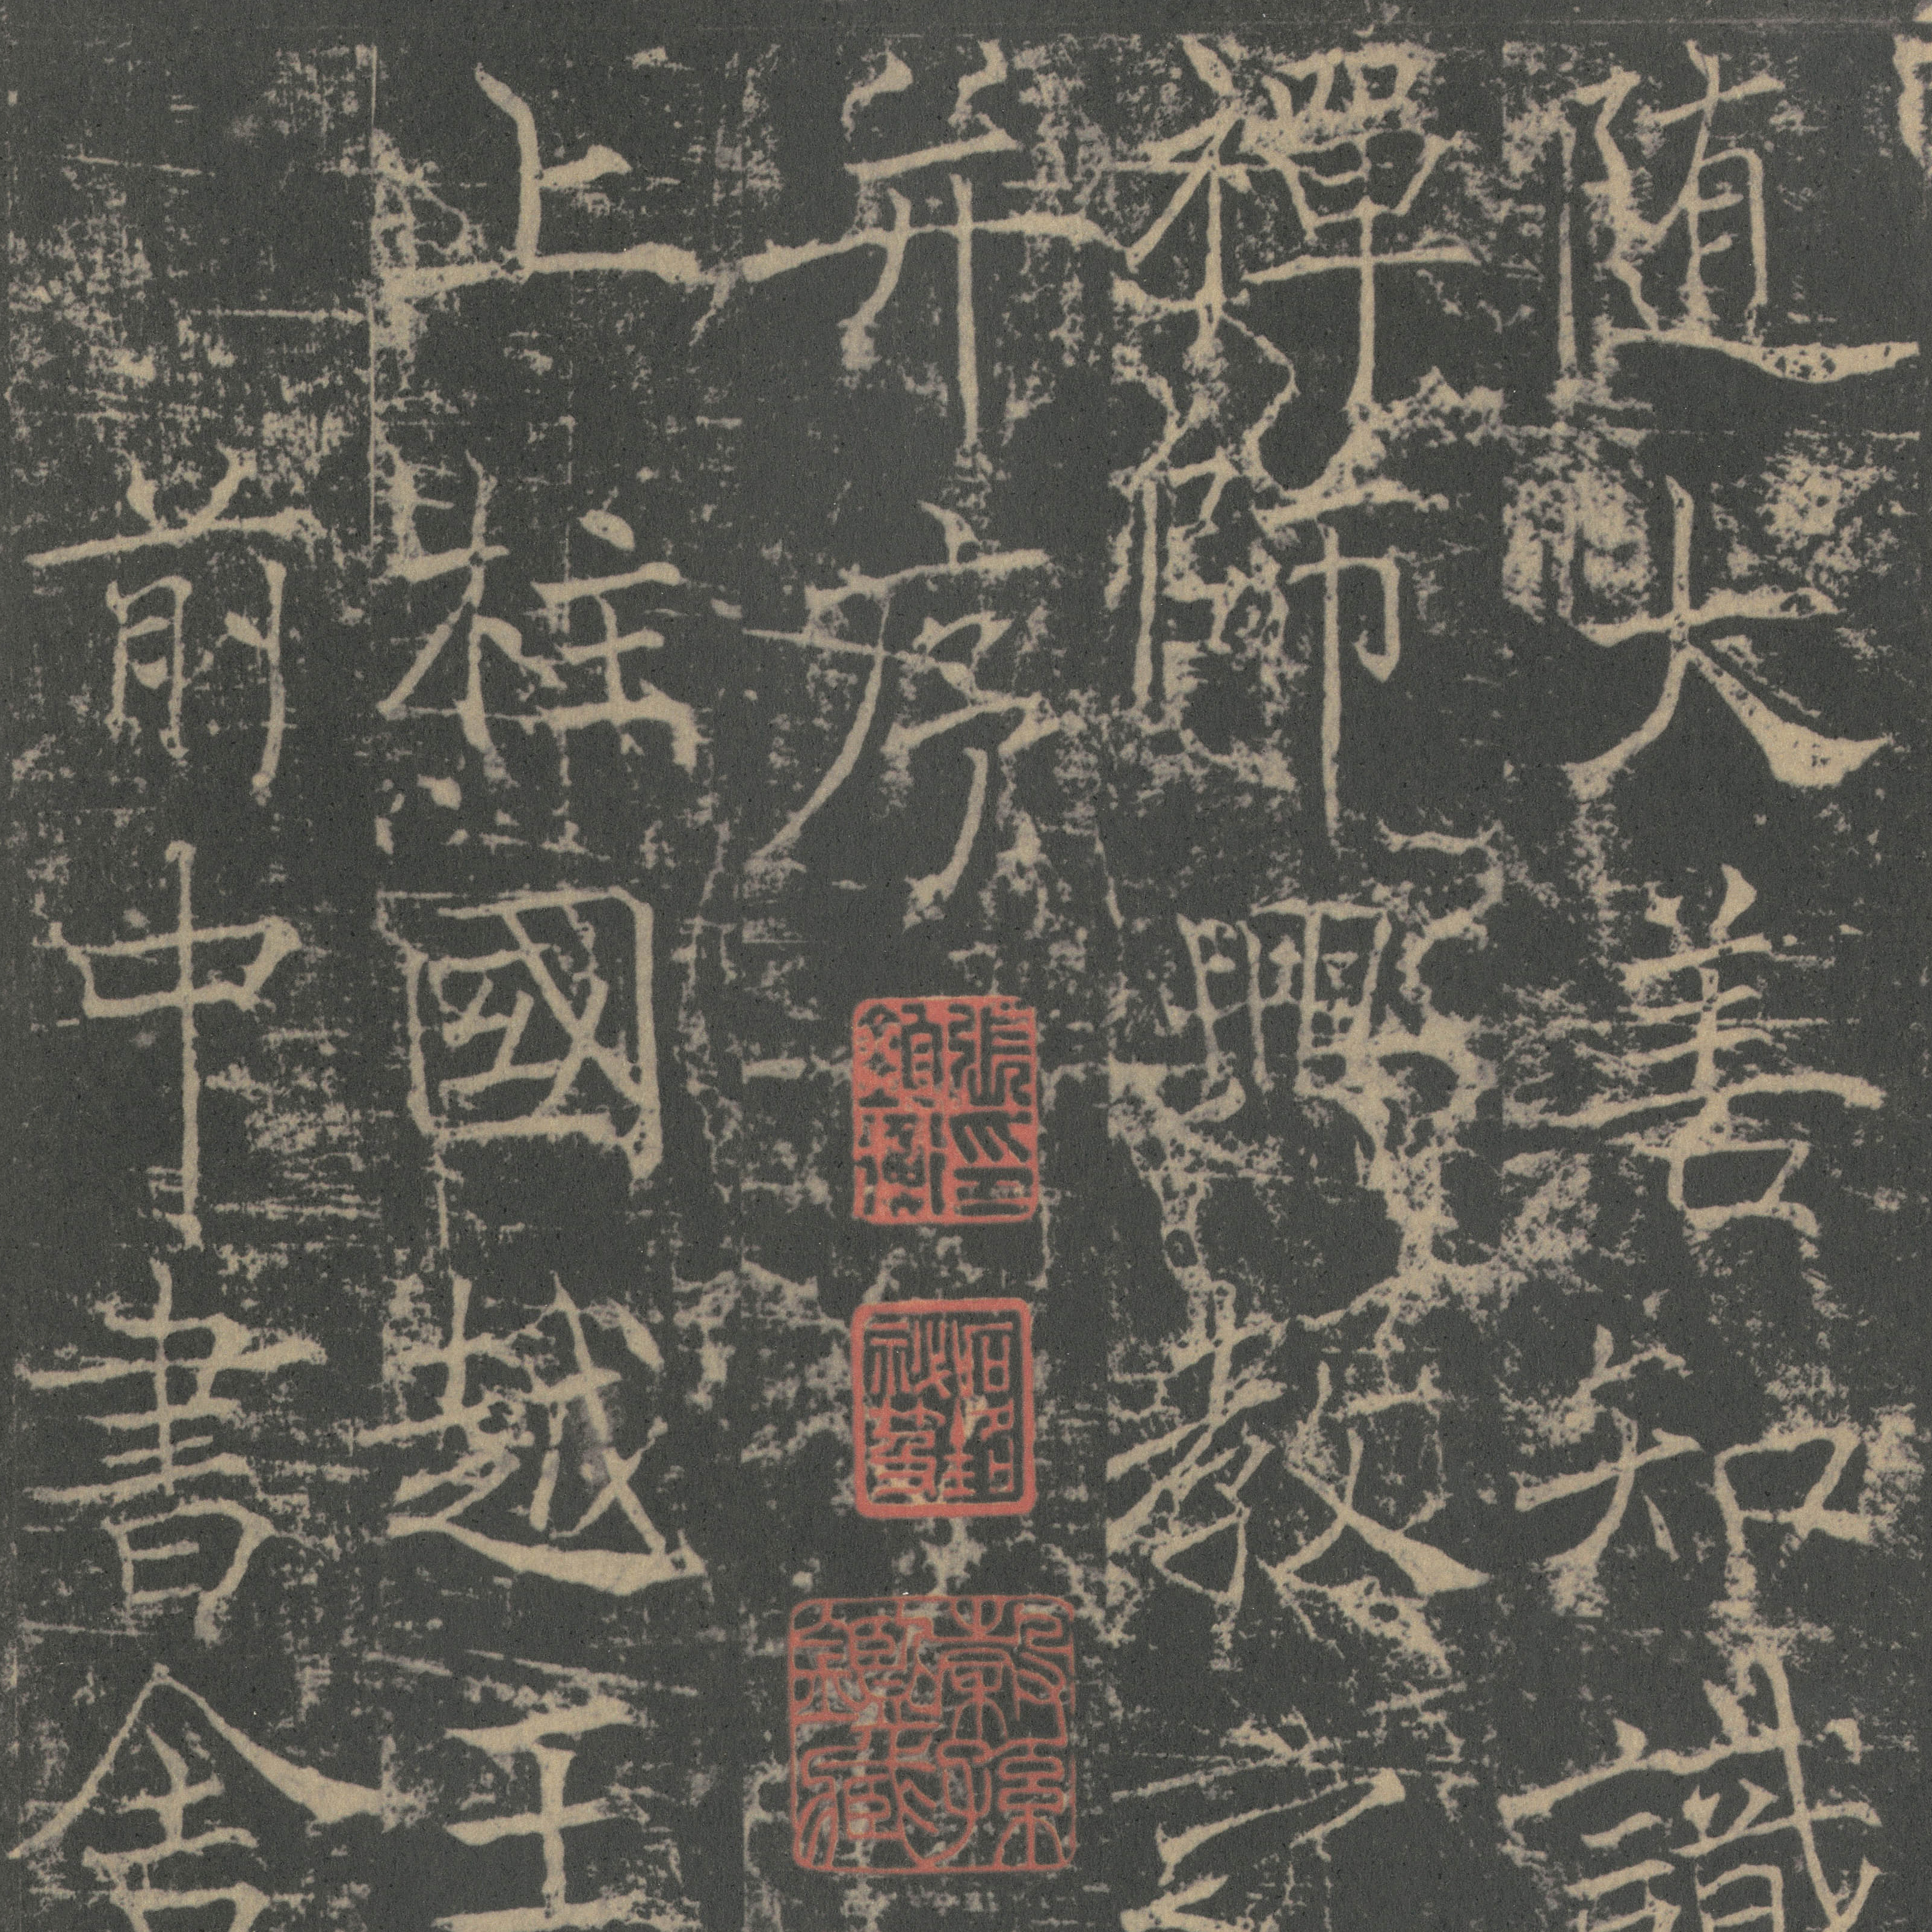 随大善知識
禪師興教之
并序
上柱國越王
前中書舍
穀孫鑑藏